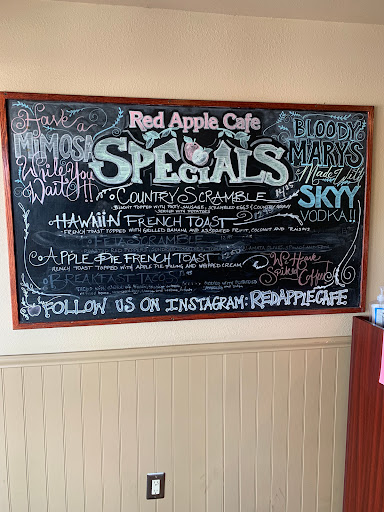 Red Apple Cafe
SPECIALS
Have a
MIMOSA
While You
Wait!!!
BLOODY
MARYS
Made with
SKYY
VODKA!!
COUNTRY SCRAMBLE
BISCUIT TOPPED WITH PATTY SAUSAGE, SCRAMBLED EGGS COUNTRY GRAVY
SERVED WITH POTATOES
HAWAIIN FRENCH TOAST
FRENCH TOAST TOPPED WITH GRILLED BANANA AND ASSORTED FRUIT, COCONUT AND RAISINS
FETA SCRAMBLE
APPLE PIE FRENCH TOAST
FRENCH TOAST TOPPED WITH APPLE PIE FILLING AND WHIPPED CREAM
We Have
Spiked
Coffee
FOLLOW US ON INSTAGRAM: REDAPPLECAFE